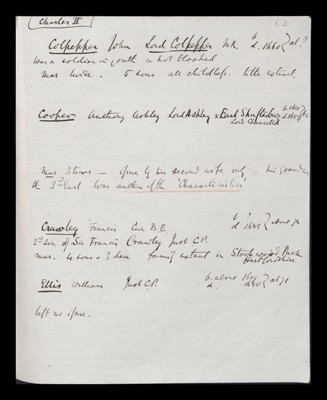 Charles II
Colpepper John Lord Colpepper M.R. b. d. 1660
was a soldier in youth & hot blooded
mar twice. 5 sons all childless. title extinct.
Cooper Anthony Ashley Lord Ashley & Earl Shaftesbury
Lord Chancellor
Mar 3 times — issue by his second wife only — his grandson
the 3rd Earl was author of the "Characteristics
Crawley Francis Cur B.E.
2nd son of Sir Francis Crawley Just C.P.
mar. 4 sons & 3 dau family extant in Stockwood Park
Hertfordshire.
Ellis William Just C.P. b. about 1609 d. 1680 at 71
left no issue.